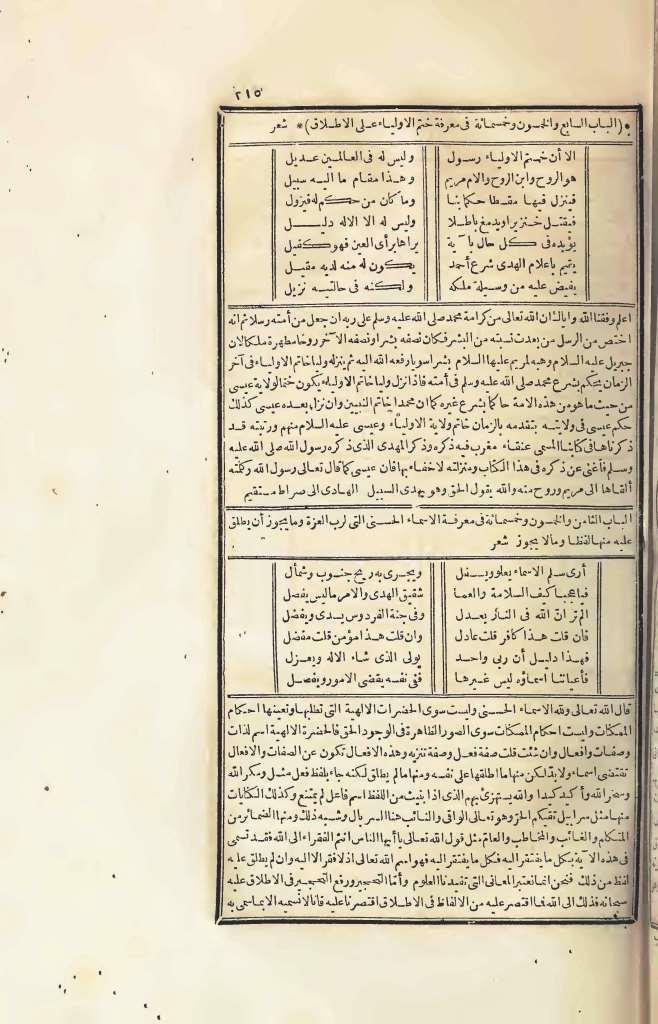 ٢١٥
* (الباب السابع والخمسون وخمسمائة فى معرفة ختم الاولياء على الاطلاق) * شعر
الا أن ختم الاولياء رسول وليس له فى العالمين عديل
هو الروح وابن الروح والام مريم وهذا مقام ما اليه سبيل
فينزل فينا مقسطا حكما بنا وما كان من حكم له فيزول
فيقتل خنزيرا ويدمغ باطلا وليس له الا الاله دليل
يؤيده فى كل حال باية يراها برأى العين فهو كفيل
يقيم باعلام الهدى شرع أحمد يكون له منه لديه مقيل
يفيض عليه من وسيلة ملكه ولكنه فى حالتيه نزيل
اعلم وفقنا الله واياك ان الله تعالى من كرامة محمد صلى الله عليه وسلم على ربه ان جعل من أمته رسلا ثم انه
اختص من الرسل من بعدت نسبته من البشر فكان نصفه بشرا ونصفه الآخر روحا مطهرة ملكا لان
جبريل عليه السلام وهبه لمريم عليها السلام بشرا سويا رفعه الله اليه ثم ينزله وليا خاتم الاولياء فى آخر
الزمان يحكم بشرع محمد صلى الله عليه وسلم فى أمته فاذا نزل وليا خاتم الاولياء يكون ختما لولاية عيسى
من حيث ما هو من هذه الامة حاكما بشرع غيره كما ان محمدا خاتم النبيين وان نزل بعده عيسى كذلك
حكم عيسى فى ولايته بتقدمه بالزمان خاتم ولاية الاولياء وعيسى عليه السلام منهم ورتبته قد
ذكرناها فى كتابنا المسمى عنقاء مغرب فيه ذكره وذكر المهدى الذى ذكره رسول الله صلى الله عليه
وسلم فأغنى عن ذكره فى هذا الكتاب ومنزلته لا خفاء بها فان عيسى كما قال تعالى رسول الله وكلمته
ألقاها الى مريم وروح منه والله يقول الحق وهو يهدى السبيل الهادى الى صراط مستقيم
الباب الثامن والخمسون وخمسمائة فى معرفة الاسماء الحسنى التى لرب العزة وما يجوز أن يطلق
عليه منها لفظا وما لا يجوز شعر
أرى سلم الاسماء يعلو ويسفل ويجرى به ريح جنوب وشمأل
فيا عجبا كيف السلامة والعما شقيق الهدى والامر ما ليس يفصل
الم تر ان الله فى النار يعدل وفى جنة الفردوس يسدى ويفضل
فان قلت هذا كافر قلت عادل وان قلت هذا مؤمن قلت مفضل
فهذا دليل أن ربى واحد يولى الذى شاء الاله ويعزل
فأعياننا اسماؤه ليس غيرها ففى نفسه يقضى الامور ويفصل
قال الله تعالى ولله الاسماء الحسنى وليست سوى الحضرات الالهية التى تطلبها وتعينها احكام
الممكنات وليست احكام الممكنات سوى الصور الظاهرة فى الوجود الحق فالحضرة الالهية اسم لذات
وصفات وافعال وان شئت قلت صفة فعل وصفة تنزيه وهذه الافعال تكون عن الصفات والافعال
تقتضى اسماء ولا بد لكن منها ما اطلقها على نفسه ومنها ما لم يطلق لكنه جاء بلفظ فعل مثل ومكر الله
وسخر الله وأكيد كيدا والله يستهزئ بهم الذى اذا بنيت من اللفظ اسم فاعل لم يمتنع وكذلك الكنايات
منها مثل سرابيل تقيكم الحر وهو تعالى الواقى والنائب هنا السربال وشبه ذلك ومنها الضمائر من
المتكلم والغائب والمخاطب والعام مثل قول الله تعالى يا أيها الناس انتم الفقراء الى الله فقد تسمى
فى هذه الآية بكل ما يفتقر اليه فكل ما يفتقر اليه فهو اسم الله تعالى اذ لا فقر الا اليه وان لم يطلق عليه
لفظ من ذلك فنحن انما نعتبر المعانى التى تفيدنا العلوم وأما التحجير ورفع التحجير فى الاطلاق عليه
سبحانه فذلك الى الله فما اقتصر عليه من الالفاظ فى الاطلاق اقتصرنا عليه فانا لا نسميه الا بما سمى به